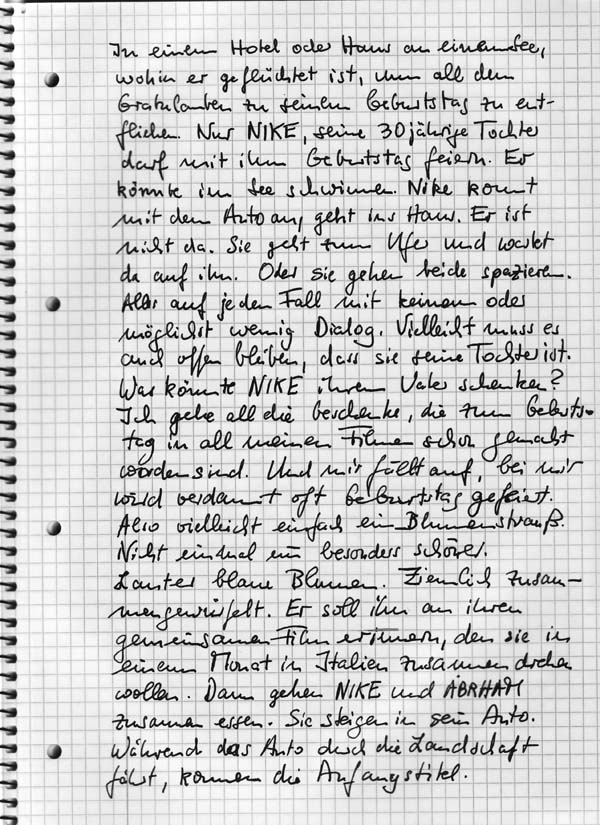 In einem Hotel oder Haus an einem See,
wohin er geflüchtet ist, um all den
Gratulanten zu seinem Geburtstag zu ent-
fliehen. Nur NIKE, seine 30jährige Tochter
darf mit ihm Geburtstag feiern. Er
könnte im See schwimmen. Nike kommt
mit dem Auto an, geht ins Haus. Er ist
nicht da. Sie geht zum Ufer und wartet
da auf ihn. Oder sie gehen beide spazieren.
Alles auf jeden Fall mit keinem oder
möglichst wenig Dialog. Vielleicht muss es
auch offen bleiben, dass sie seine Tochter ist.
Was könnte NIKE ihrem Vater schenken?
Ich gehe all die Geschenke, die zum Geburts-
tag in all meinen Filmen schon gemacht
worden sind. Und mir fällt auf, bei mir
wird verdammt oft Geburtstag gefeiert.
Also vielleicht einfach ein Blumenstrauß.
Nicht einmal ein besonders schöner.
Lauter blaue Blumen. Ziemlich zusam-
mengewürfelt. Er soll ihn an ihren
gemeinsamen Film erinnern, den sie in
einem Monat in Italien zusammen drehen
wollen. Dann gehen NIKE und ABRHAM
zusammen essen. Sie steigen in sein Auto.
Während das Auto durch die Landschaft
fährt, kommen die Anfangstitel.